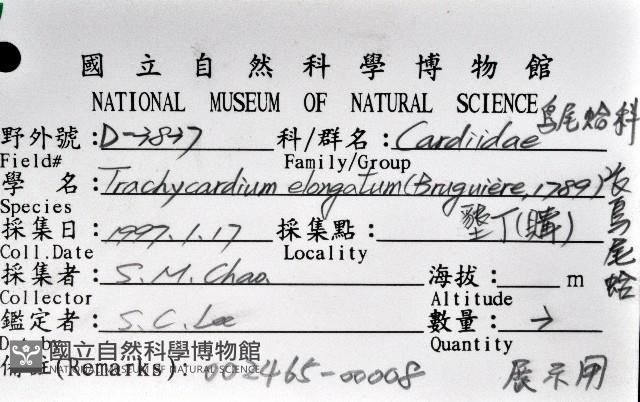 國立自然科學博物館
NATIONAL MUSEUM OF NATURAL SCIENCE
烏尾蛤科
野外號: 科/群名: Cardiidae
Field# Family/Group
學 名: Trachycardium elongatum (Bruguière, 1789)
長烏尾蛤
Species
採集日: 1997.1.17 採集點: 墾丁(購)
Coll.Date Locality
採集者: S. M. Chao 海拔: m
Collector Altitude
鑑定者: S. C. Lee 數量:
Quantity
國立自然科學博物館
NATIONAL MUSEUM OF NATURAL SCIENCE
(Remarks): 002465-00008 展示用